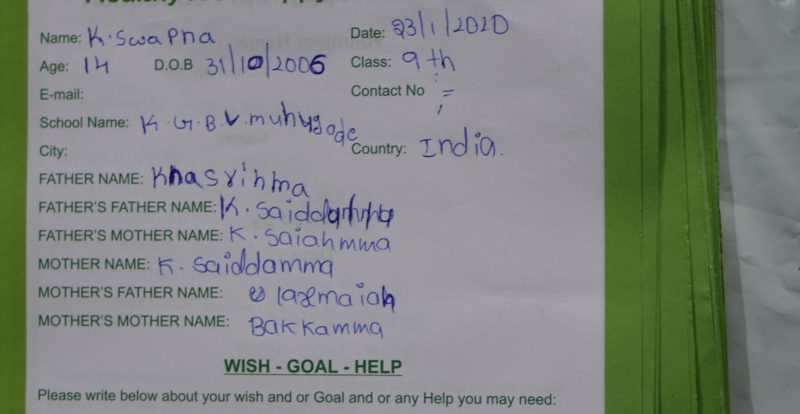 Name: K. Swapna Date: 23/1/2020
Age: 14 D.O.B 31/10/2006 Class: 9th
E-mail: Contact No
School Name: K.G.B.V. muhygode
City: Country: India.
FATHER NAME:
FATHER'S FATHER NAME: K.
FATHER'S MOTHER NAME: K. saiahmma
MOTHER NAME: K. Saiddamma
MOTHER'S FATHER NAME:
MOTHER'S MOTHER NAME: Bakkamma
WISH - GOAL - HELP
Please write below about your wish and or Goal and or any Help you may need: